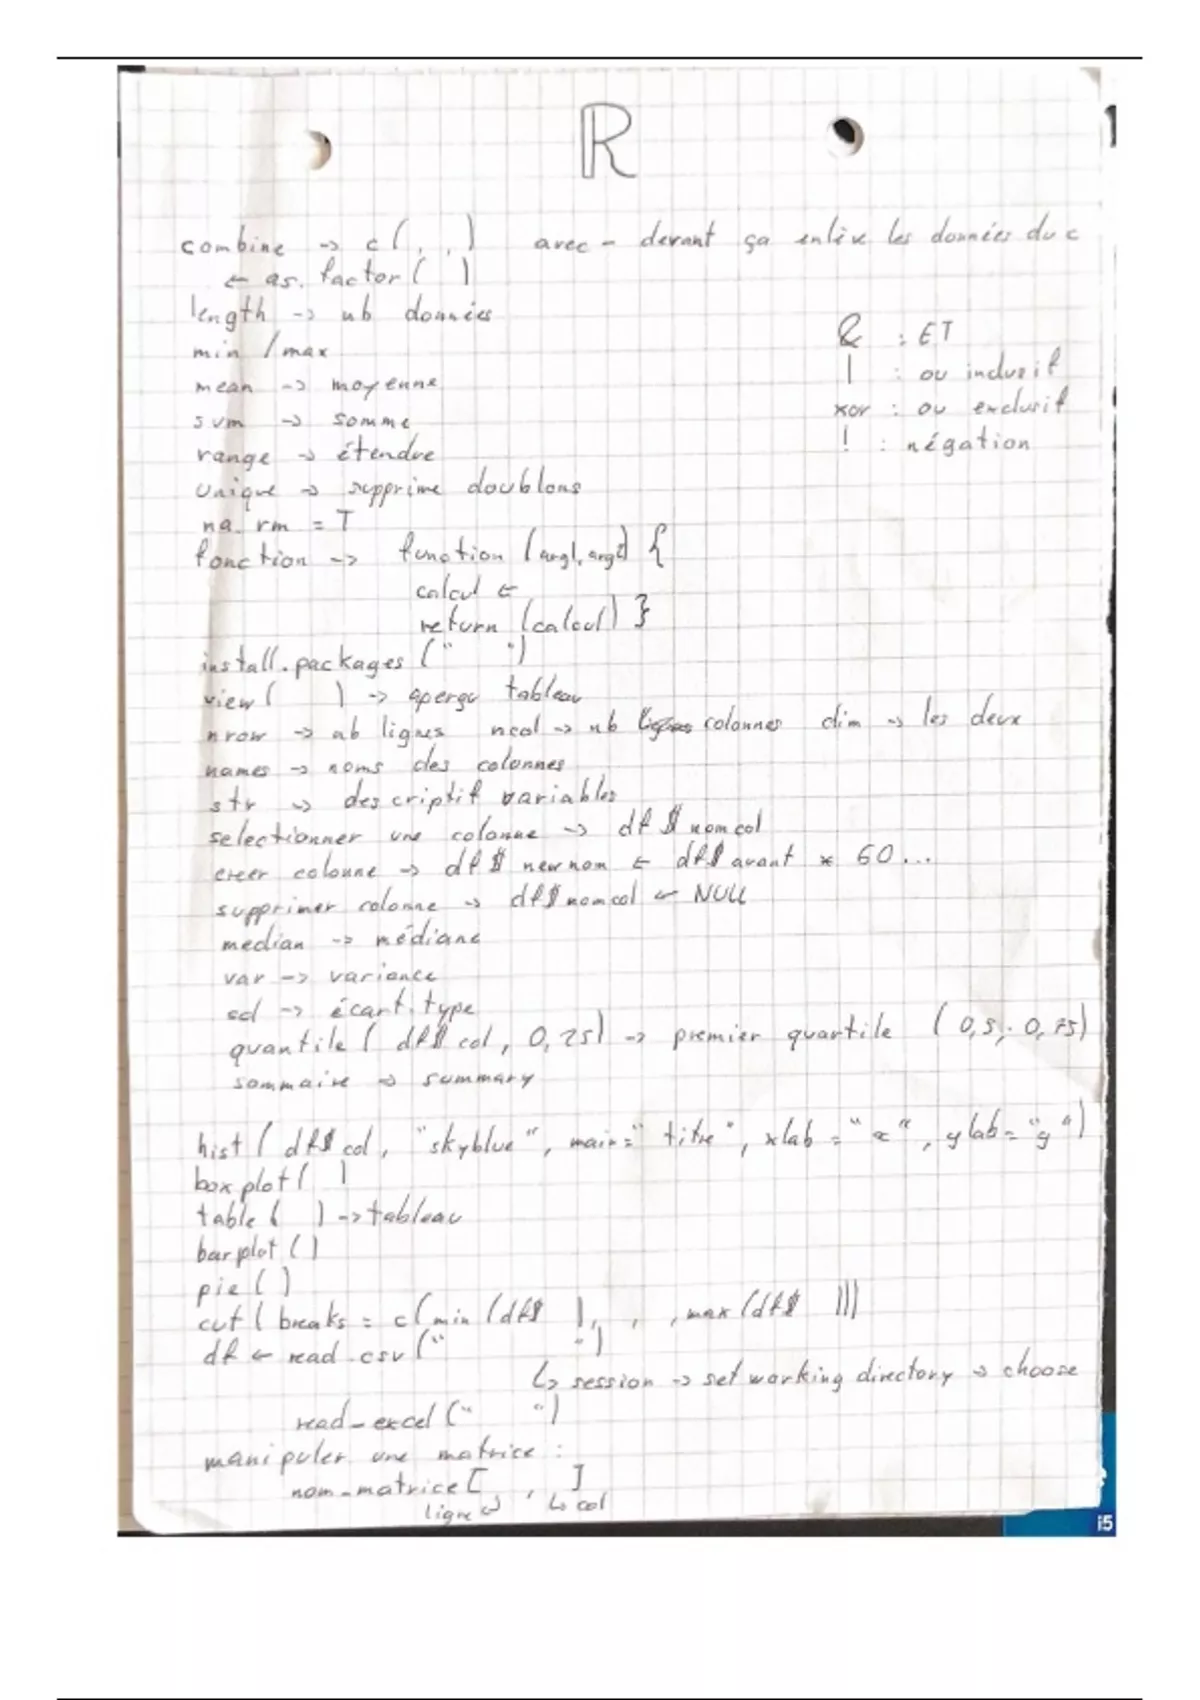 R
combine -> c( , , ) avec - devant ça enlève les données du c
<- as.factor( )
length -> nb données
min / max
mean -> moyenne
sum -> somme
range -> étendre
unique -> supprime doublons
na.rm = T
& : ET
| : ou inclusif
xor : ou exclusif
! : négation
fonction -> function (arg1, arg2) {
calcul <-
return (calcul) }
install.packages (" ")
view ( ) -> aperçu tableau
nrow -> nb lignes ncol -> nb colonnes dim -> les deux
names -> noms des colonnes
str -> descriptif variables
selectionner une colonne -> df $ nomcol
creer colonne -> df $ newnom <- df$ avant * 60...
supprimer colonne -> df$ nomcol <- NULL
median -> médiane
var -> variance
sd -> écart.type
quantile ( df$ col, 0,25) -> premier quartile (0,5; 0,75)
sommaire -> summary
hist ( df$ col, "skyblue", main=" titre", xlab = "x", ylab = "y")
boxplot ( )
table ( ) -> tableau
barplot ()
pie ( )
cut ( breaks = c(min (df$ ), , , max (df$ )))
df <- read.csv (" ")
↳ session -> set working directory -> choose
read_excel (" ")
manipuler une matrice :
nom_matrice [ , ]
ligne ↲ ↳ col
i5